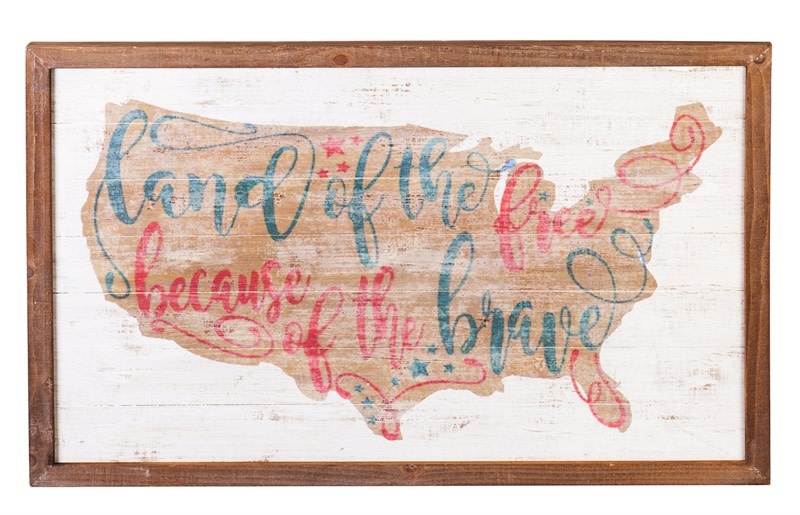 land of the free
because of the brave